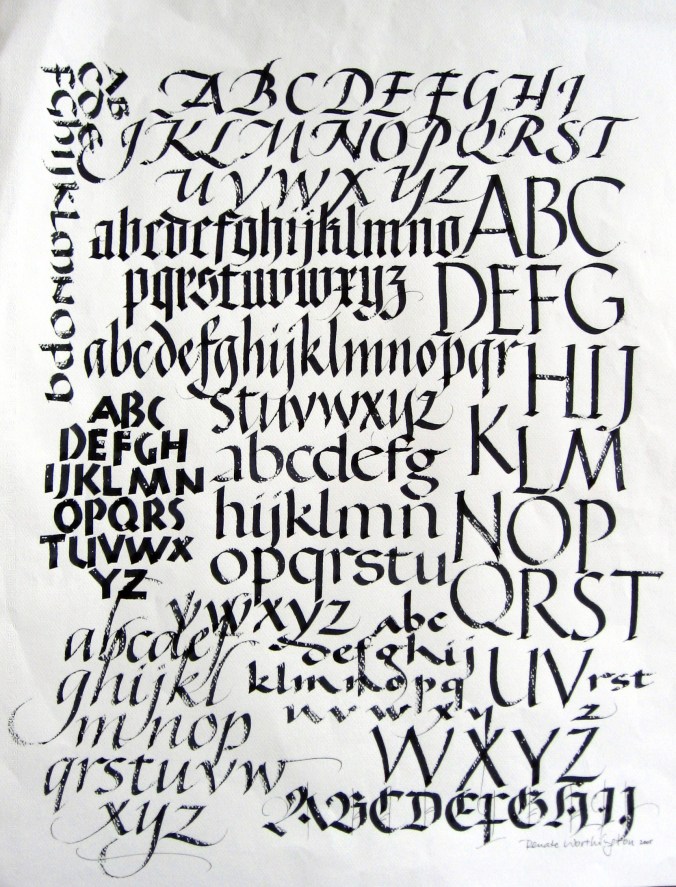 AB
CD
E
FGhijklmnopq
ABCDEFGHI
JKLMNOPQRST
UVWXYZ
abcdefghijklmno
pqrstuvwxyz
ABC
DEFG
HIJ
KLM
NOP
QRST
UV
WXYZ
abcdefghijklmnopqr
stuvwxyz
ABC
DEFGH
IJKLMN
OPQRS
TUVWX
YZ
abcdefg
hijklmn
opqrstu
vwxyz
abc
defghij
klmnopq
rst
uvwxy
z
abcdef
ghijkl
mnop
qrstuvw
xyz
ABCDEFGHIJ
Renate Worthington